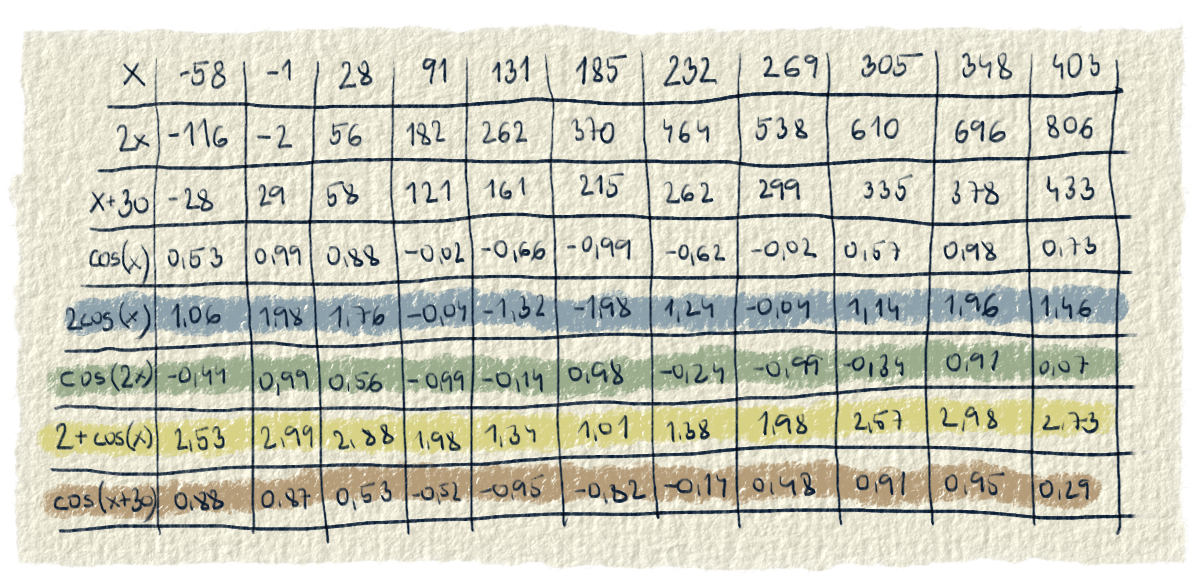 x -58 -1 28 91 131 185 232 269 305 348 403
2x -116 -2 56 182 262 370 464 538 610 696 806
x+30 -28 29 58 121 161 215 262 299 335 378 433
cos(x) 0,53 0,99 0,88 -0,02 -0,66 -0,99 -0,62 -0,02 0,57 0,98 0,73
2cos(x) 1,06 1,98 1,76 -0,04 -1,32 -1,98 1,24 -0,04 1,14 1,96 1,46
cos(2x) -0,44 0,99 0,56 -0,99 -0,14 0,98 -0,24 -0,99 -0,34 0,91 0,07
2+cos(x) 2,53 2,99 2,88 1,98 1,34 1,01 1,38 1,98 2,57 2,98 2,73
cos(x+30) 0,88 0,87 0,53 -0,52 -0,95 -0,82 -0,14 0,48 0,91 0,95 0,29